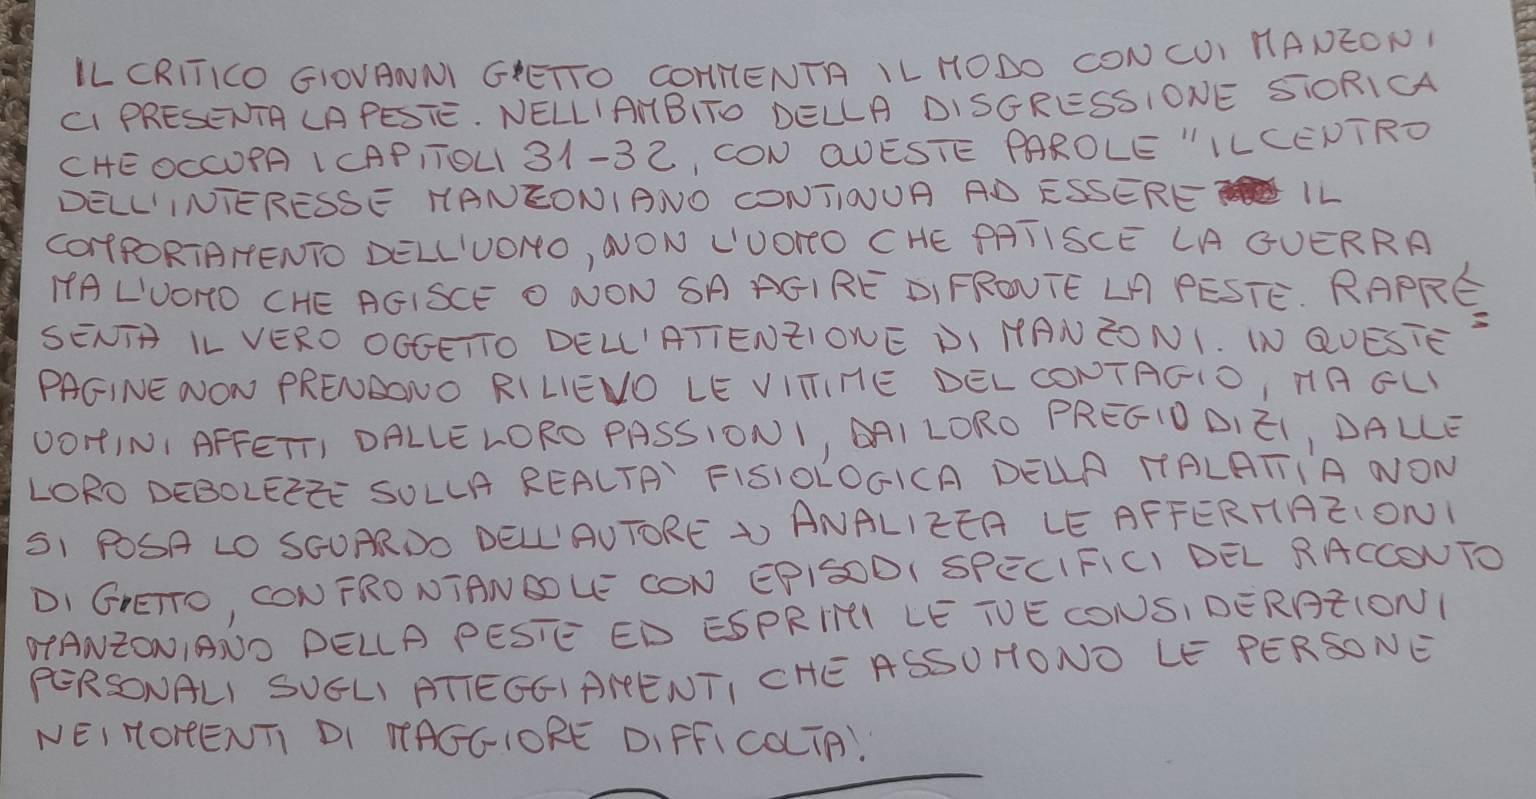 IL CRITICO GIOVANNI GIETTO COMMENTA IL MODO CON CUI MANZONI
CI PRESENTA LA PESTE. NELL'AMBITO DELLA DISGRESSIONE STORICA
CHE OCCUPA I CAPITOLI 31-32, CON QUESTE PAROLE "IL CENTRO
DELL'INTERESSE MANZONIANO CONTINUA AD ESSERE IL
COMPORTAMENTO DELL'UOMO, NON L'UOMO CHE PATISCE LA GUERRA,
MA L'UOMO CHE AGISCE O NON SA AGIRE DI FRONTE LA PESTE. RAPRE=
SENTA IL VERO OGGETTO DELL'ATTENZIONE DI MANZONI. IN QUESTE
PAGINE NON PRENDONO RILIEVO LE VITTIME DEL CONTAGIO, MA GLI
UOMINI AFFETTI DALLE LORO PASSIONI, DAI LORO PREGIUDIZI, DALLE
LORO DEBOLEZZE SULLA REALTA' FISIOLOGICA DELLA MALATTIA NON
SI POSA LO SGUARDO DELL'AUTORE → ANALIZZA LE AFFERMAZIONI
DI GIETTO, CONFRONTANDOLE CON EPISODI SPECIFICI DEL RACCONTO
MANZONIANO DELLA PESTE ED ESPRIMI LE TUE CONSIDERAZIONI
PERSONALI SUGLI ATTEGGIAMENTI CHE ASSUMONO LE PERSONE
NEI MOMENTI DI MAGGIORE DIFFICOLTA'.